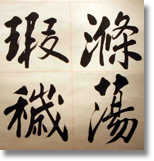 滌蕩
瑕穢